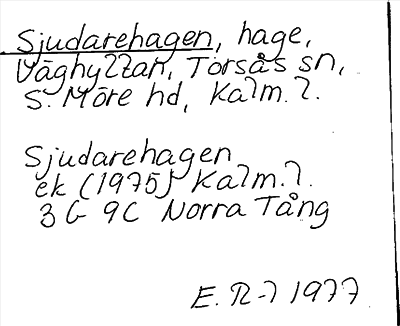 Sjudarehagen, hage,
Väghyltan, Torsås sn,
S. Möre hd, Kalm. l.
Sjudarehagen
ek (1975) Kalm. l.
3 G 9C Norra Tång
E. R-7 1977